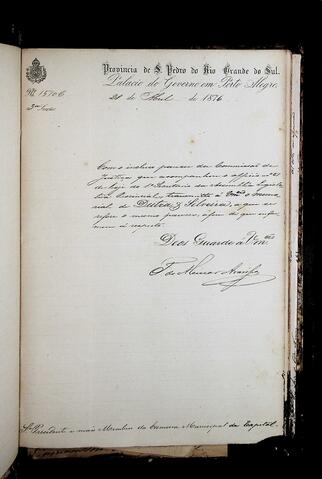 Provincia de S. Pedro do Rio Grande do Sul.
Palacio do Governo em Porto Alegre,
Nº 1570 G
21 de Abril de 1876
3ª Secção
Com o incluso parecer da Commissão de
Justiça que acompanhou o officio nº 21
de hoje do 1º Secretario da Assembléa Legisla
tiva Provincial, transmitto a Vmcês o memo
rial de Dutra & Silveira, a que se
refere o mesmo parecer, afim de que infor
mem á respeito.
Deos Guarde a Vmcês
Snr. Presidente e mais Membros da Camara Municipal da Capital.